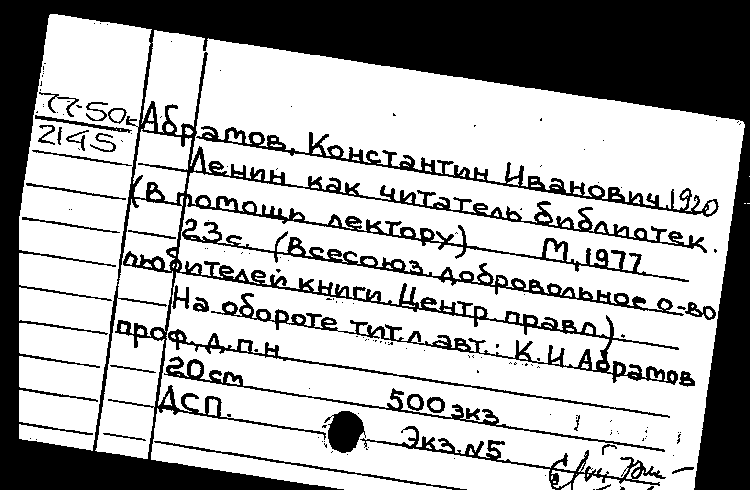 77-50к
2145
Абрамов, Константин Иванович. 1920
Ленин как читатель библиотек.
(В помощь лектору) М., 1977.
23 с. (Всесоюз. добровольное о-во
любителей книги. Центр. правл.).
На обороте тит. л. авт.: К.И. Абрамов
проф., д.п.н.
20 см 500 экз.
ДСП. Экз. №5.